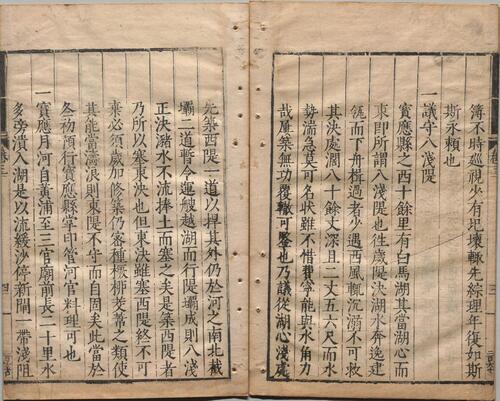 簿不時巡視少有圯壞輙先綜理年復如斯
斯永賴也
一議守八淺隄
寳應縣之西十餘里有白馬湖其當湖心而
東即所謂八淺隄也徃歲隄決湖水奔逸建
瓴而下舟楫過者少遇西風輒沉溺不可救
其決處濶八十餘丈深且二丈五六尺而水
勢湍急莫可名狀雖不惜費寧能與水角力
哉屢築無功覆轍可鑒也乃議從湖心淺處
先築西隄一道以捍其外仍於河之南北截
壩二道暫令運艘越湖而行隄壩成則八淺
正決瀦水不流捧土而塞之矣是築西隄者
乃所以塞東決也但東決雖塞西隄終不可
棄必須歲加修築仍畨種橛栁茭蓄之類使
其能當濤浪則東隄不守而自固矣此當於
冬初預行寳應縣掌印管河官料理可也
一寳應月河自黃浦至三官廟前長二十里水
多旁潰入湖是以流緩沙停新開一帶淺阻
卷三
三
四